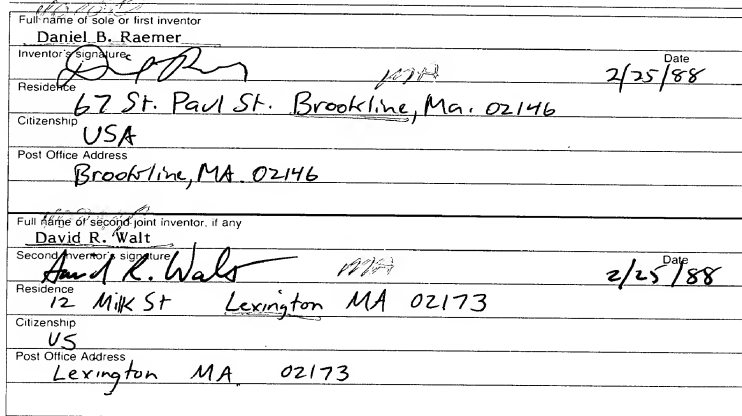 Full name of sole or first inventor
Daniel B. Raemer
Inventor's signature Date
MA 2/25/88
Residence
67 St. Paul St. Brookline, Ma. 02146
Citizenship
USA
Post Office Address
Brookline, MA 02146
Full name of second joint inventor, if any
David R. Walt
Second Inventor's signature Date
David R. Walt MA 2/25/88
Residence
12 Milk St Lexington MA 02173
Citizenship
US
Post Office Address
Lexington MA 02173